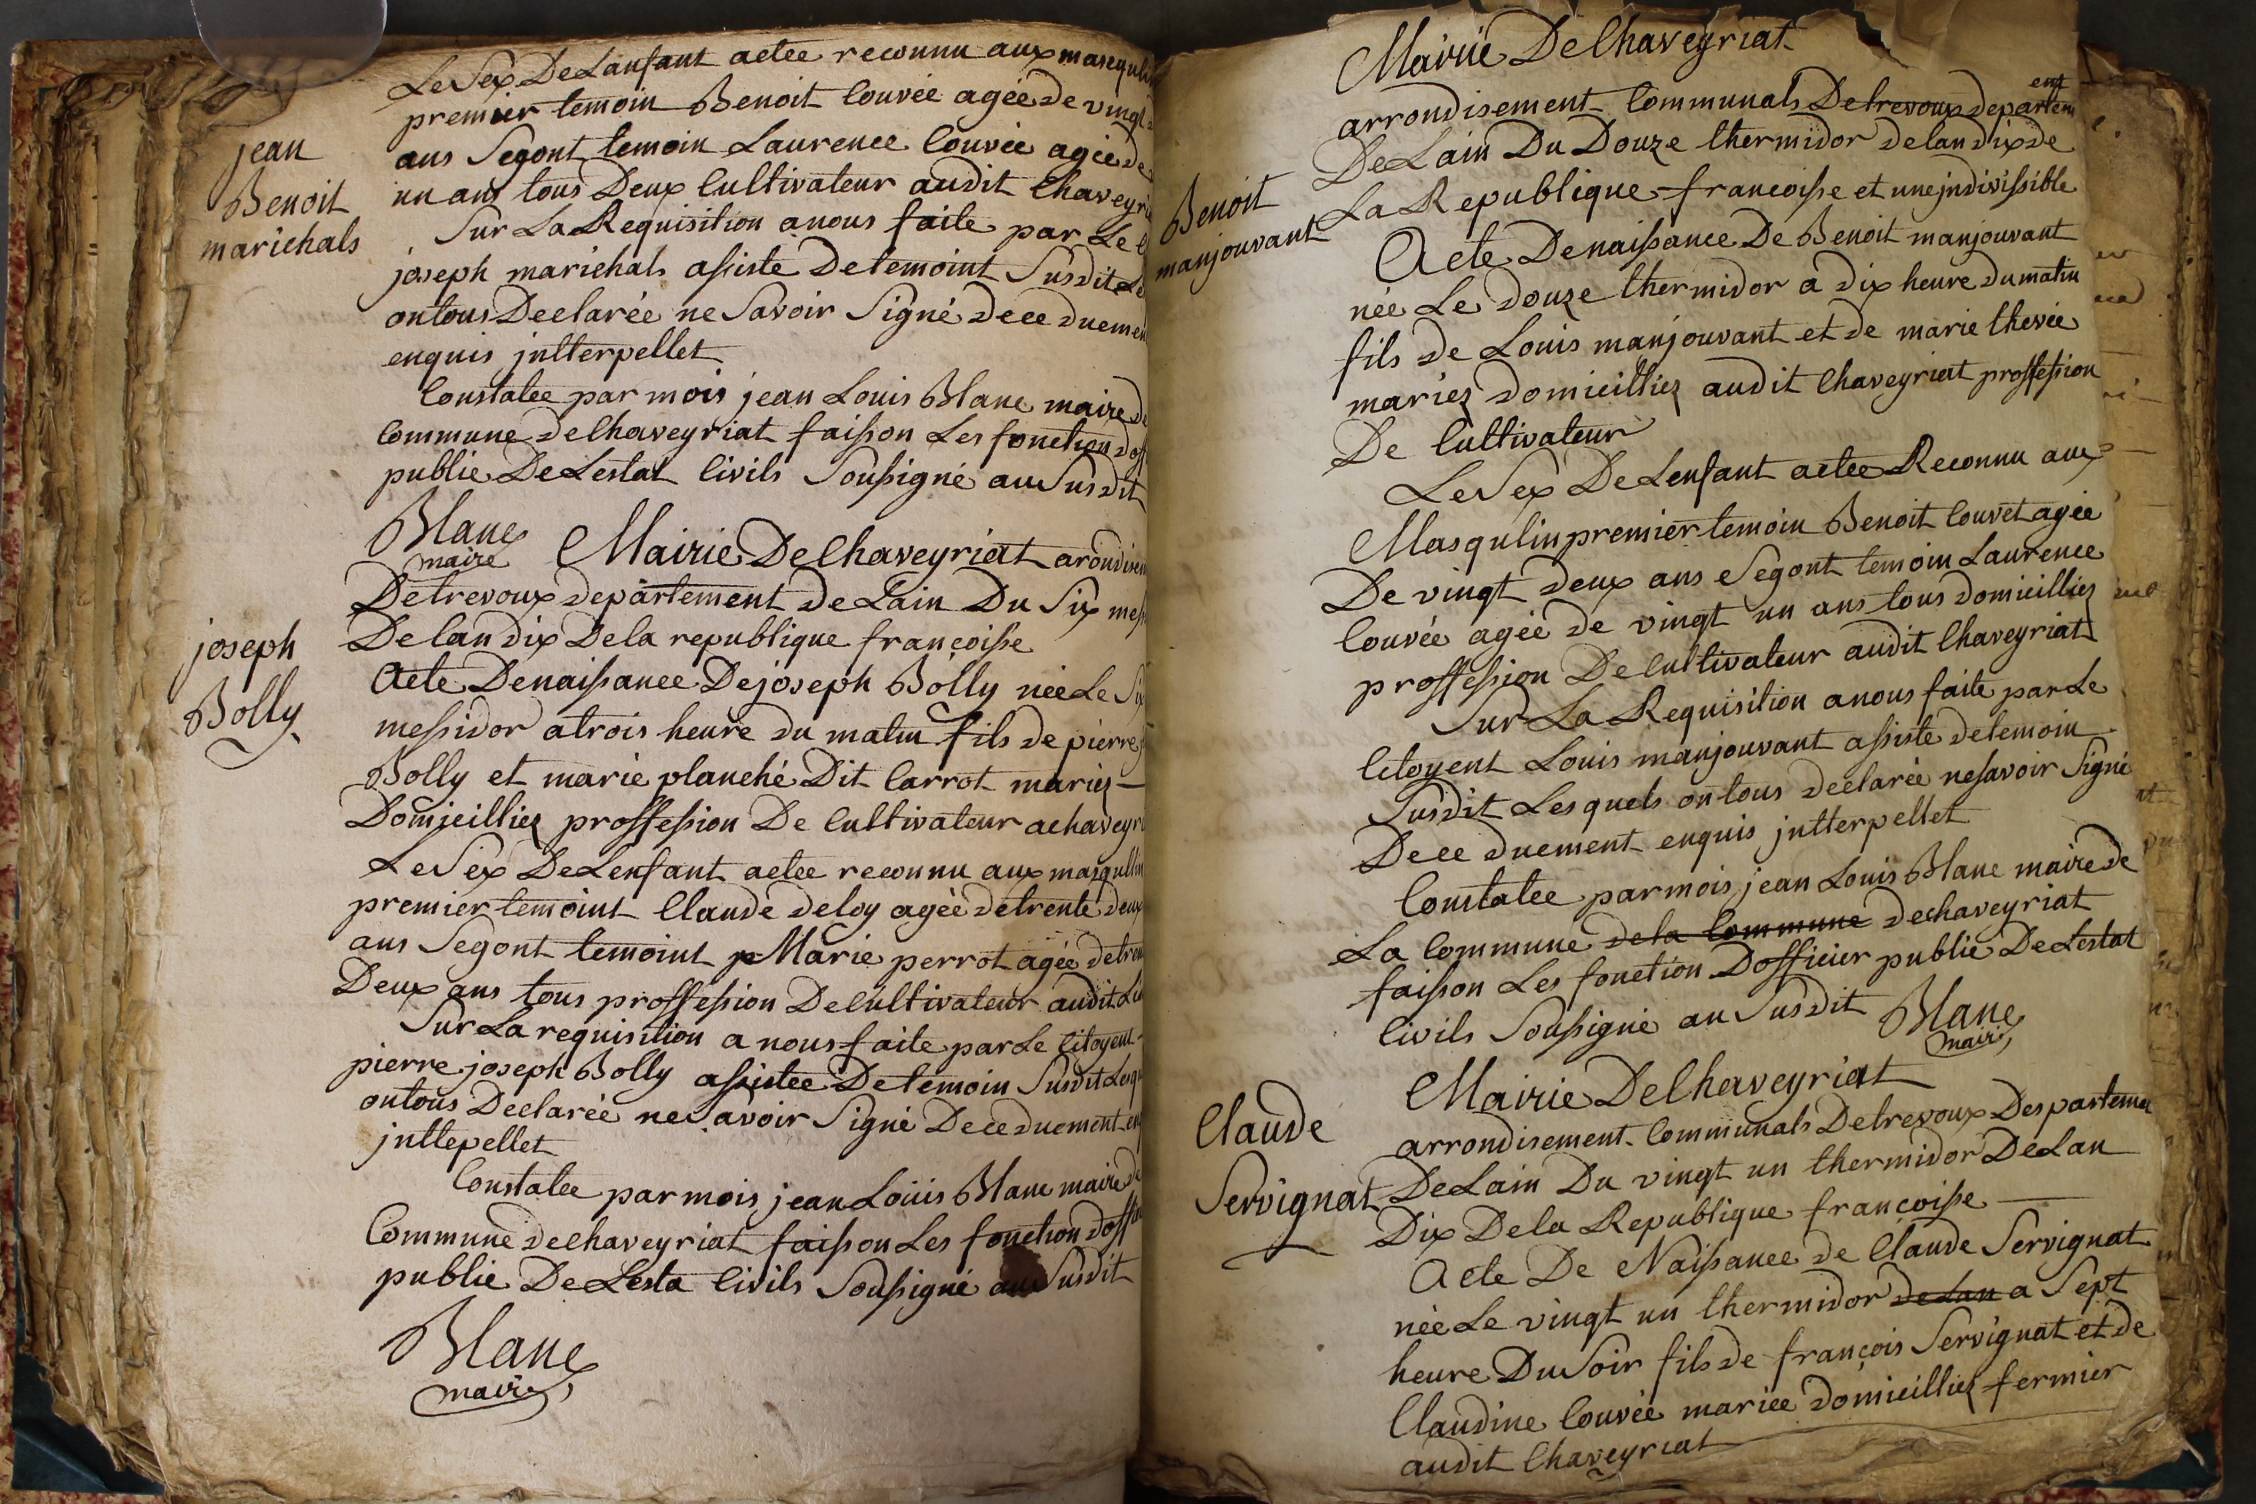 Le Sex De Lanfant actee reconnu aux masquli
premier temoin Benoit Couvée agée de vingt
jean
Benoit
marichals
ans Segont temoin Laurence Couvée agée de
un ans tous Deux Cultivateur audit Chaveyri
Sur La Requisition a nous faite par Le
joseph marichals assiste De temoint Susdit
on tous Declarée ne Savoir Signé de ce duemen
enquis jntterpellet
Constatee par mois jean Louis Blanc maire de
Commune de Chaveyriat faisson Les fonction dof
public De Lestat Civils Soussigné au Susdit
Blanc
maire
Mairie De Chaveyriat arondisem
De trevoux departement de Lain Du Six mess
De lan dix De la republique françoisse
joseph
Bolly
Acte De naissance De joseph Bolly née Le Six
messidor a trois heure du matin fils de pierre
Bolly et marie planché Dit Carrot mariez
Domjcilliez proffession De Cultivateur a chaveyri
Le Sex De Lenfant actee reconnu aux masqullin
premier temoint Claude deloy agée de trente deux
ans Segont temoint Marie perrot agée de tren
Deux ans tous proffession De Cultivateur audit
Sur La requisition a nous faite par Le Citoyent
pierre joseph Bolly assistee De temoin Susdit Lesqu
on tous Declarée ne Savoir Signé De ce duement en
jnttepellet
Constatee par mois jean Louis Blanc maire de
Commune de chaveyriat faisson Les fonction doffi
public De Lesta Civils Soussigné au Susdit
Blanc
maire
Mairie De Chaveyriat
arrondisement Communals De trevoux departem
ent
De Lain Du Douze thermidor de lan dix de
La Republique francoisse et une jndivissible
Benoit
manjouvant
Acte De naissance De Benoit manjouvant
née Le douze thermidor a dix heure du matin
fils de Louis manjouvant et de marie thevée
mariez domicilliez audit Chaveyriat proffession
De Cultivateur
Le Sex De Lenfant actee Reconnu aux
Masqulin premier temoin Benoit Couvet agée
De vingt deux ans Segont temoin Laurence
Couvée agée de vingt un ans tous domicilliez
proffession De Cultivateur audit Chaveyriat
Sur La Requisition a nous faite par Le
Citoyent Louis manjouvant assiste de temoin
Susdit Lesquels on tous declarée ne savoir Signé
De ce duement enquis jntterpellet
Constatee par mois jean Louis Blanc maire de
La Commune de la Commune de chaveyriat
faisson Les fonction Dofficier public De Lestat
Civils Soussigné au Susdit
Blanc
maire
Mairie De Chaveyriat
arrondisement Communals De trevoux Despartemen
Claude
Servignat
De Lain Du vingt un thermidor De Lan
Dix De la Republique françoisse
Acte De Naissance de Claude Servignat
née Le vingt un thermidor de Lan a Sept
heure Du Soir fils de françois Servignat et de
Claudine Couvée mariée domicilliez fermier
audit Chaveyriat